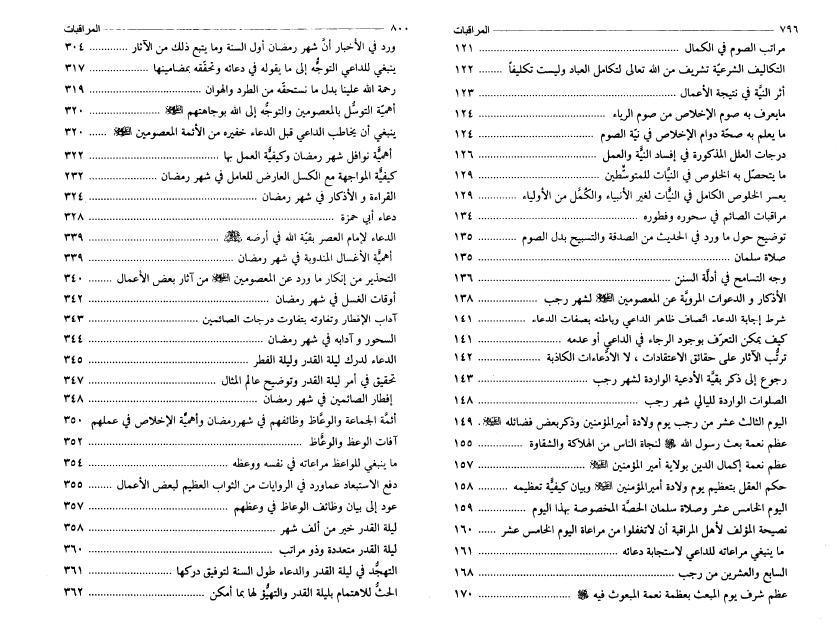 ٧٩٦ المراقبات
مراتب الصوم في الكمال ١٢١
التكاليف الشرعيّة تشريف من الله تعالى لتكامل العباد وليست تكليفاً ١٢٢
أثر النيّة في نتيجة الأعمال ١٢٣
مايعرف به صوم الإخلاص من صوم الرياء ١٢٤
ما يعلم به صحّة دوام الإخلاص في نيّة الصوم ١٢٤
درجات العلل المذكورة في إفساد النيَّة والعمل ١٢٦
ما يتحصّل به الخلوص في النيّات للمتوسِّطين ١٢٩
يعسر الخلوص الكامل في النيَّات لغير الأنبياء والكُمَّل من الأولياء ١٢٩
مراقبات الصائم في سحوره وفطوره ١٣٤
توضيح حول ما ورد في الحديث من الصدقة والتسبيح بدل الصوم ١٣٥
صلاة سلمان ١٣٥
وجه التسامح في أدلَّة السنن ١٣٦
الأذكار و الدعوات المرويَّة عن المعصومين لشهر رجب ١٣٨
شرط إجابة الدعاء اتّصاف ظاهر الداعي وباطنه بصفات الدعاء ١٤١
كيف يمكن التعرّف بوجود الرجاء في الداعي أو عدمه ١٤١
ترتُّب الآثار على حقائق الاعتقادات ، لا الادّعاءات الكاذبة ١٤٢
رجوع إلى ذكر بقيَّة الأدعية الواردة لشهر رجب ١٤٣
الصلوات الواردة لليالي شهر رجب ١٤٨
اليوم الثالث عشر من رجب يوم ولادة أميرالمؤمنين وذكربعض فضائله ١٤٩
عظم نعمة بعث رسول الله لنجاة الناس من الهلاكة والشقاوة ١٥٥
عظم نعمة إكمال الدين بولاية أمير المؤمنين ١٥٧
حكم العقل بتعظيم يوم ولادة أميرالمؤمنين وبيان كيفيَّة تعظيمه ١٥٨
اليوم الخامس عشر وصلاة سلمان الحصّة المخصوصة بهذا اليوم ١٥٩
نصيحة المؤلف لأهل المراقبة أن لاتغفلوا من مراعاة اليوم الخامس عشر ١٦٠
ما ينبغي مراعاته للداعي لاستجابة دعائه ١٦١
السابع والعشرين من رجب ١٦٨
عظم شرف يوم المبعث بعظمة نعمة المبعوث فيه ١٧٠
٨٠٠ المراقبات
ورد في الأخبار أنَّ شهر رمضان أول السنة وما يتبع ذلك من الآثار ٣٠٤
ينبغي للداعي التوجُّه إلى ما يقوله في دعائه وتحقّقه بمضامينها ٣١٧
رحمة الله علينا بدل ما نستحقّه من الطرد والهوان ٣١٩
أهميّة التوسُّل بالمعصومين والتوجُّه إلى الله بوجاهتهم ٣٢٠
ينبغي أن يخاطب الداعي قبل الدعاء خفيره من الأئمة المعصومين ٣٢٠
أهميَّة نوافل شهر رمضان وكيفيَّة العمل بها ٣٢٢
كيفيَّة المواجهة مع الكسل العارض للعامل في شهر رمضان ٢٣٢
القراءة و الأذكار في شهر رمضان ٣٢٤
دعاء أبي حمزة ٣٢٨
الدعاء لإمام العصر بقيّة الله في أرضه ٣٣٩
أهميَّة الأغسال المندوبة في شهر رمضان ٣٣٩
التحذير من إنكار ما ورد عن المعصومين من آثار بعض الأعمال ٣٤٠
أوقات الغسل في شهر رمضان ٣٤٢
آداب الإفطار وتفاوته بتفاوت درجات الصائمين ٣٤٣
السحور و آدابه في شهر رمضان ٣٤٤
الدعاء لدرك ليلة القدر وليلة الفطر ٣٤٥
تحقيق في أمر ليلة القدر وتوضيح عالم المثال ٣٤٧
إفطار الصائمين في شهر رمضان ٣٤٨
أئمَّة الجماعة والوعَّاظ وظائفهم في شهررمضان وأهميُّة الإخلاص في عملهم ٣٥٠
آفات الوعظ والوعَّاظ ٣٥٢
ما ينبغي للواعظ مراعاته في نفسه ووعظه ٣٥٤
دفع الاستبعاد عماورد في الروايات من الثواب العظيم لبعض الأعمال ٣٥٥
عود إلى بيان وظائف الوعاظ في وعظهم ٣٥٧
ليلة القدر خير من ألف شهر ٣٥٨
ليلة القدر متعددة وذو مراتب ٣٦٠
التهجُّد في ليلة القدر والدعاء طول السنة لتوفيق دركها ٣٦١
الحثُّ للاهتمام بليلة القدر والتهيُّؤ لها بما أمكن ٣٦٢